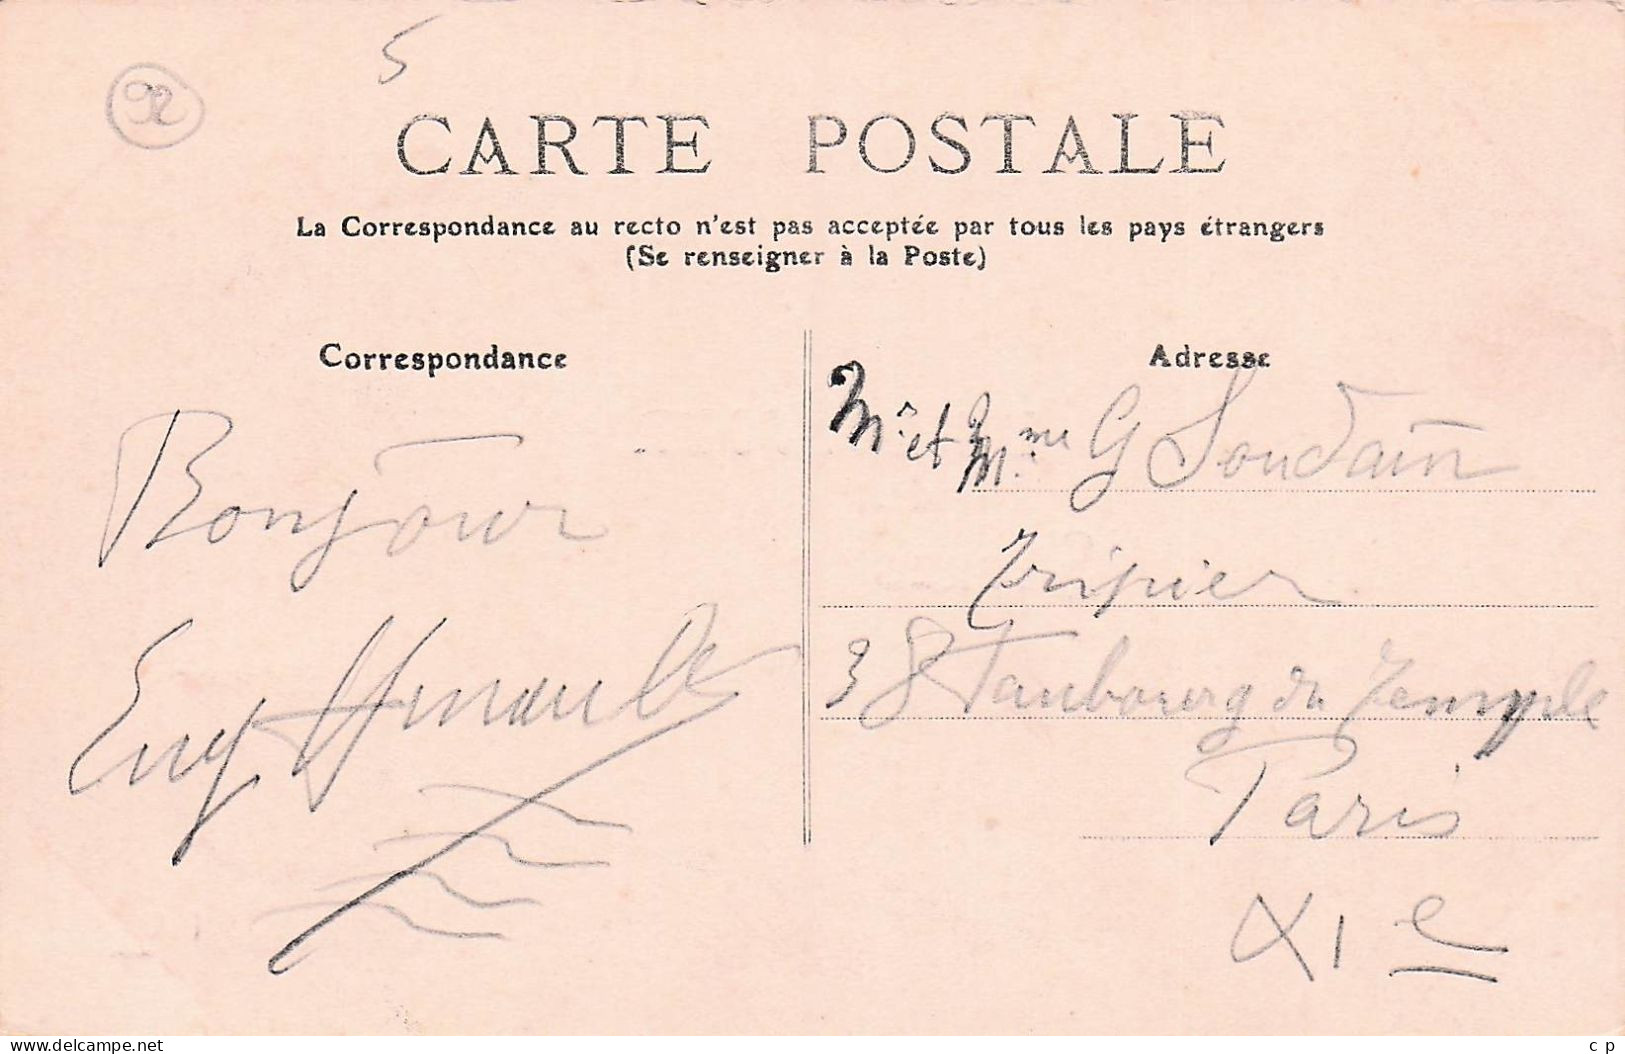 5
92
CARTE POSTALE
La Correspondance au recto n'est pas acceptée par tous les pays étrangers
(Se renseigner à la Poste)
Correspondance
Bonjour
Eug
Adresse
Mr et Mme G Soudain
Tripier
38 Faubourg du Temple
Paris
XIe
delcampe.net
c p